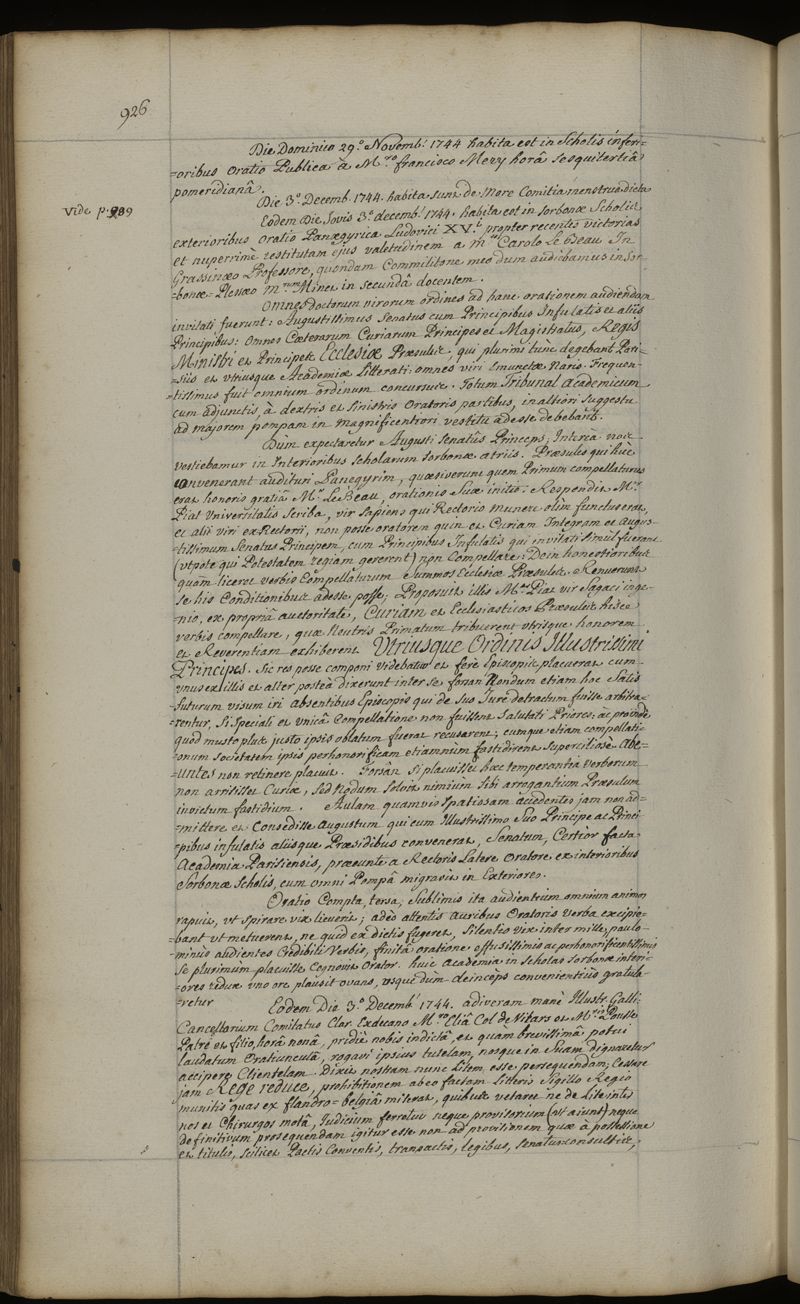 926
Die Dominico 29.º Novemb.! 1744 habita est in Scholis inferi=
=oribus Oratio Publica à M.ro francisco Mery horâ sesquitertiâ
pomeridianâ.
Die 3.º Decemb. 1744. habita sunt de More Comitia menstrua dicta
Vide p. 939
Eodem Die Jovis 3.º decemb.! 1744. habita est in Sorbonæ Scholis
exterioribus Oratio Panægyrica Ludovici XV.i propter recentes victorias
et nuperrimè restitutam ejus valetudinem a m.ro Carolo Le Beau In
Grassinæo Professore, quondam Commilitone meo dum audiebamus in Sor=
=bonæ-Plessæo M.rum Minet in secundâ docentem.
Omnes doctorum virorum ordines ad hanc orationem audiendam
invitati fuerunt: Augustissimus Senatus cum Principibus Infulatis et aliis
Principibus: Omnes Cæterarum Curiarum Principes et Magistratus, Regis
Ministri et Principes Ecclesiæ Præsules, qui plurimi tunc degebant Pari=
=siis et utriusque Academiæ Litterati: omnes viri Emunctæ Naris. Frequen=
=tissimus fuit omnium ordinum concursus. Totum Tribunal Academicum
cum adjunctis, à dextris et sinistris Oratoris partibus, in altiori Suggestu
ad majorem pompam in magnificentiori vestitu adesse debebant.
Dùm expectaretur Augusti Senatûs Princeps; Intereà nos
vestiebamur in Interioribus Scholarum Sorbonæ atriis. Præsules qui huc
convenerant audituri Panegyrim, quæsiverunt quem Primum compellaturus
erat honoris gratiâ M.r Le Beau, orationis Suæ initio: Respondit M.r
Piat Universitatis Scriba, vir sapiens qui Rectorio munere olim functus erat,
et alii viri ex-Rectorii, non posse oratorem quin et Curiam Integram et Augus=
=tissimum Senatus Principem, cum Principibus Infulatis qui invitati simul fuerant
(utpote qui Potestatem regiam gererent) non Compellare: Dein honestioribus
quàm liceret verbis Compellaturum Summos Ecclesiæ Præsules. Renuerunt
Se his Conditionibus adesse posse; Proposuit illis M.r Piat vir Sagaci inge=
=nio, ex propriâ auctoritate, Curiam et Ecclesiasticos Præsules hisce
verbis compellare, quæ Neutris Primatum tribuerent utrisque honorem
et Reverentiam exhiberent Utriusque Ordinis Illustrissimi
Principes. Sic res posse componi videbatur et ferè Episcopis placuerat cum
unus ex illis et alter posteà dixerunt inter se forsan Nondum etiam hoc Satis
futurum visum iri absentibus Episcopis qui de suo Jure detractum fuisse arbitra=
=rentur, Si Speciali et unicâ Compellatione non fuissent Salutati Priores; ac proinde
quod multo plus justo ipsis oblatum fuerat recusarent; cumque etiam compellati=
=onum Societatem ipsis perhonorificam etiamnum fastidirent Superciliosè Abe=
=untes non retinere placuit. Forsàn si placuisset hæc temperantia verborum
non arrisisset Curiæ, sed Nodum solvit nimium sibi arrogantium Præsulum
invictum fastidium. Aulam quamvis spatiosam accedentes jam non ad=
=mittere et Consedisse Augustum qui cum Illustrissimo Suo Principe ac Princi=
=pibus infulatis aliisque Præsidibus convenerat, Senatum, Certior facta
Academia Parisiensis, præeunte a Rectoris Latere Oratore, ex interioribus
Sorbonæ Scholis, cum omni Pompâ migravit in Exteriores.
Oratio Compta, tersa, Sublimis ita audientium omnium animos
rapuit, ut spirare vix licuerit; adeo attentis auribus Oratoris verba excipie=
=bant ut metuerent, ne quid ex dictis fugeret, Silentio vix inter mille, paulo=
minus audientes Credibili Verbis, finitâ oratione effusissimis ac perhonorificentissimis
Se plurimum placuisse Cognovit Orator. huic Academia in Scholas Sorbonæ interi=
=ores redux uno ore plausit ovans, usque dum deinceps convenientius gratula=
=retur
Eodem Die 3.º Decemb.! 1744. adiveram manè Illustr. Galli.
Cancellarium Comitatus Clar. Exdecano M.ro Eliâ Col de Vilars et M.ris Pousse
Patre et filio, horâ nonâ, pridiè nobis indictâ, et quàm brevissimâ potui
laudatum Oratiunculâ, rogavi ipsius tutelam, nosque in suam dignaretur
accipere Clientelam. Dixit nostram nunc Litem esse persequendam; Cessare
jam Rege reduce, prohibitionem ab eo factam Litteris Sigillo Regio
munitis quas ex flandro=belgiâ miserat, quibus vetaret ne de Lite inter
nos et Chirurgos motâ, Judicium ferretur neque provisorium (ut aiunt) neque
definitivum prosequendam igitur esse non ad provisionem quæ à possessione
et titulis, scilicet Pactis Conventis, transactis, legibus, Senatusconsultis,